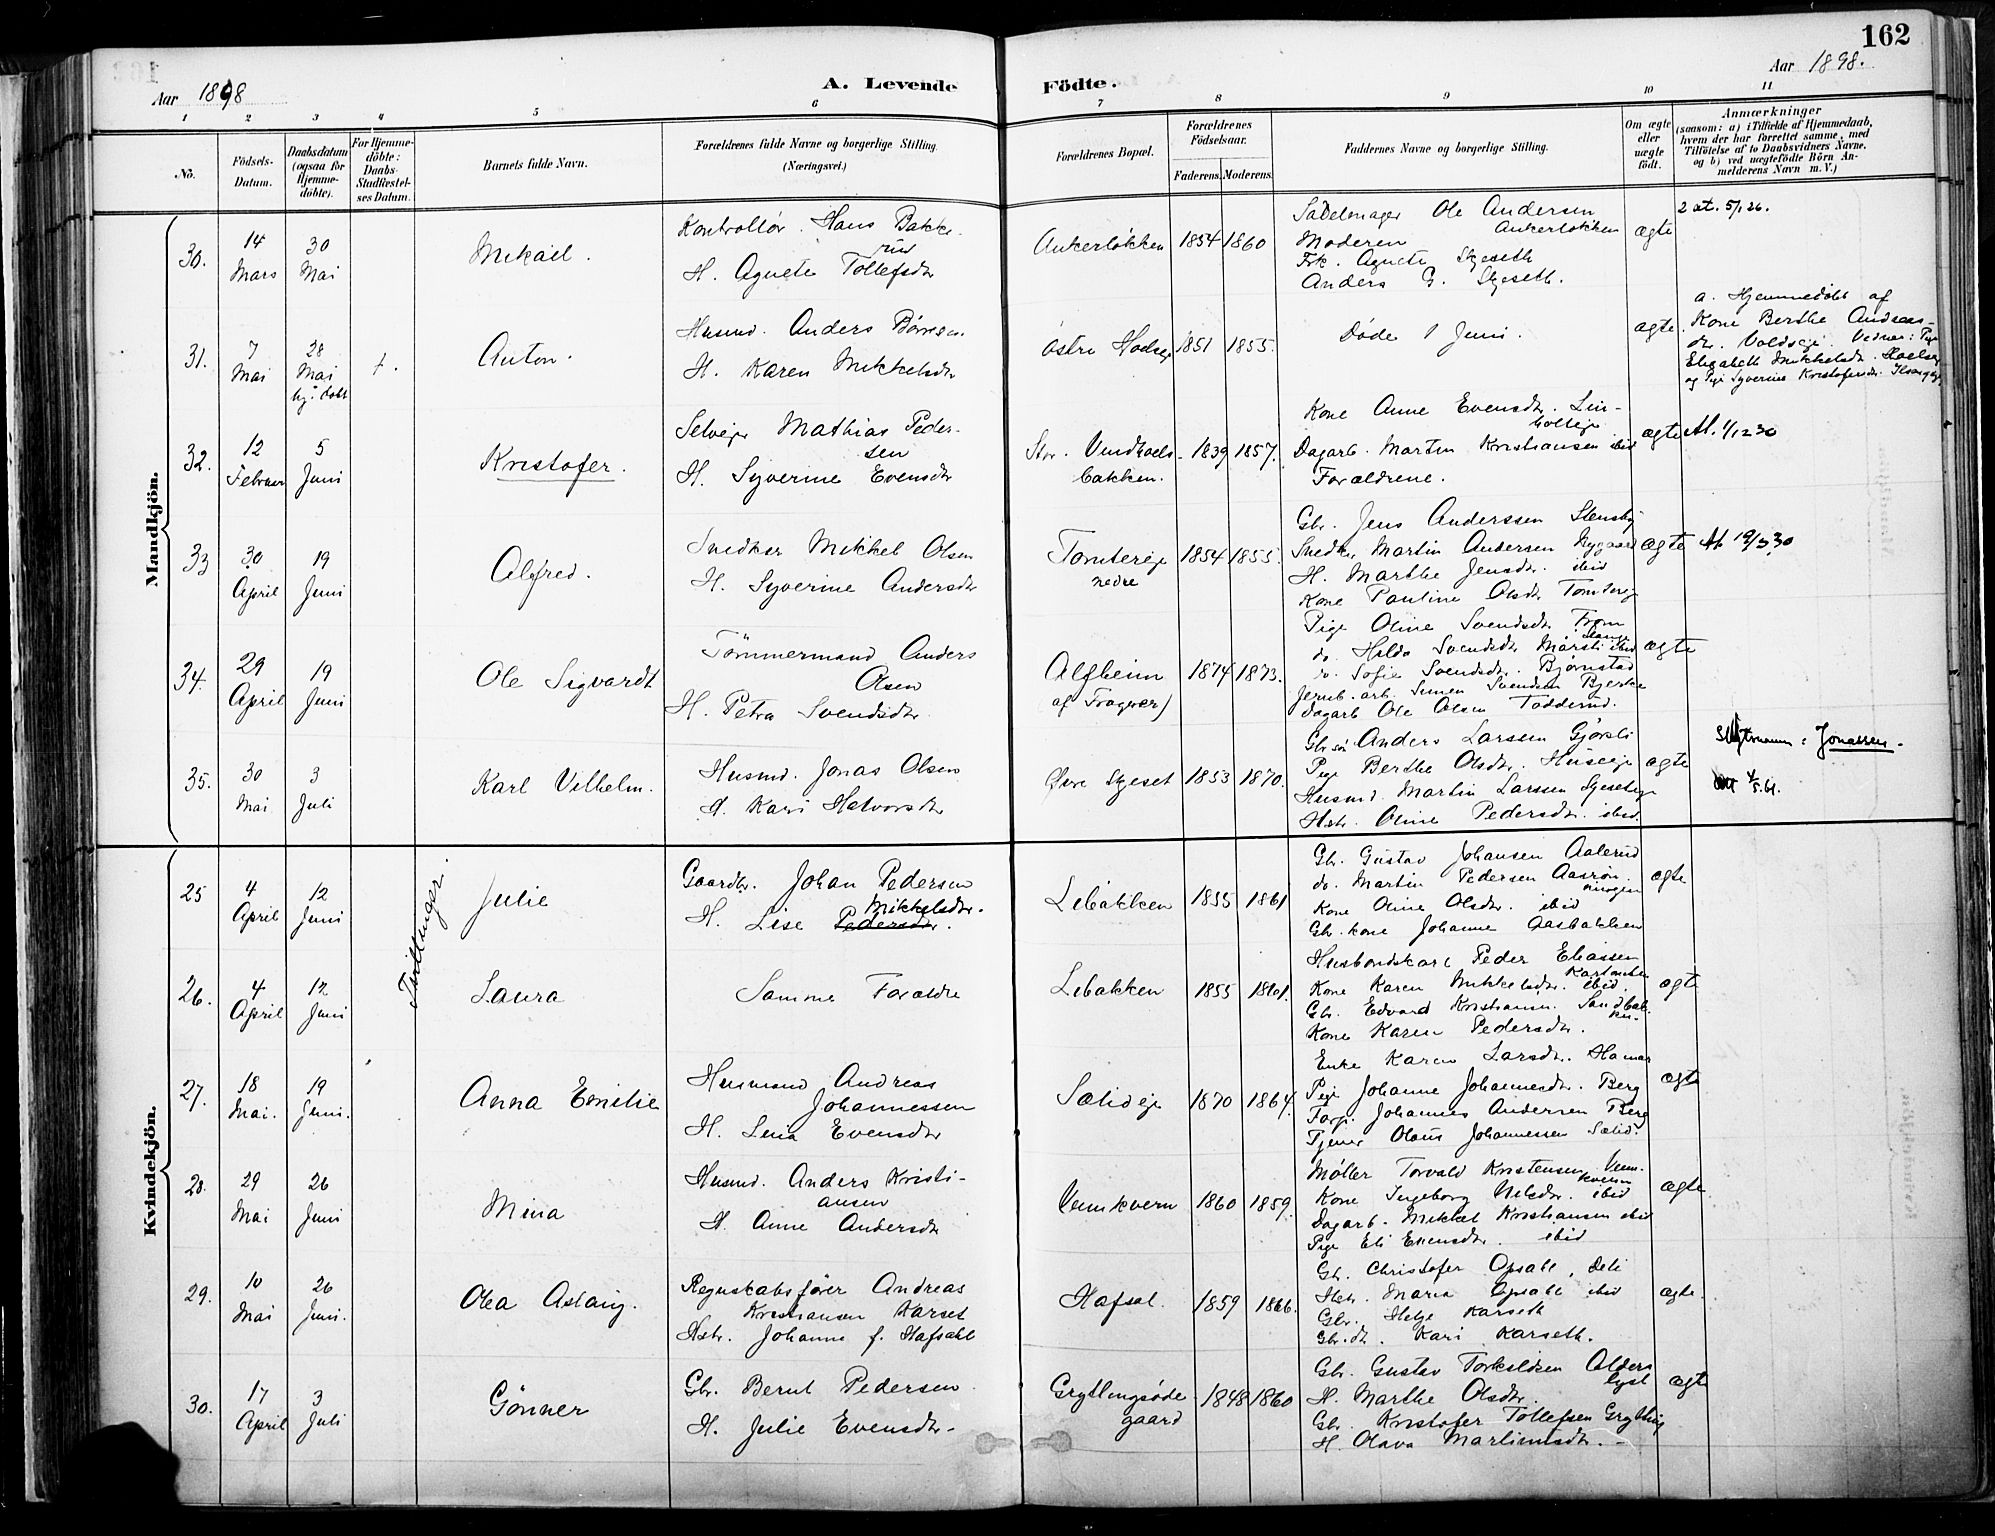 162
Aar 1898
A. Levende
Födte.
Aar 1898.
1 2 3 4 5 6 7 8 9 10 11
No.
Födsels-
Datum.
Daabsdatum
(ogsaa for
Hjemme-
döbte).
For Hjemme-
döbte:
Daabs-
Stadfæstel-
ses Datum.
Barnets fulde Navn.
Forældrenes fulde Navne og borgerlige Stilling.
(Næringsvei.)
Forældrenes Bopæl.
Forældrenes
Födselsaar.
Faderens. Moderens.
Faddernes Navne og borgerlige Stilling.
Om ægte
eller
uægte
födt.
Anmærkninger
(saasom: a) i Tilfælde af Hjemmedaab,
hvem der har forrettet samme, med
Tilföielse af to Daabsvidners Navne.
og b) ved uægtefödte Börn An-
melderens Navn m. V.)
Mandkjön.
30.
14
Mars
30
Mai
Mikael.
Kontrollør. Hans Bakke-
rud
H. Agnete Tollefsdr
Ankerløkken
1854 1860
Sadelmager Ole Andersen
Ankerløkken
Moderen
Frk. Agnete Skjeseth
Anders G. Skjeseth.
ægte
2 at. 5/1 26.
31.
7
Mai
28
Mai
hj: døbt
†.
Anton.
Husmd. Anders Børresen
H. Karen Mikkelsdr
Østre Hoelseje
1851 1855.
Døde 1 Juni.
ægte.
a. Hjemmedøbt af
Kone Berthe Andreas-
dr. Voldseje. Vidner: Pige
Elisabeth Mikkelsdr. Hoelseje
og Pige Syverine Kristofersdr.
32.
12
Februar
5
Juni
Kristofer.
Selveier Mathias Peder-
sen
H. Syverine Evensdr
Stor. Vendkvels-
bakken.
1839 1857.
Kone Anne Evensdr. Lin-
holteje
Dagarb. Martin Kristiansen ibid
Forældrene.
ægte
At. 1/12 30
33
30
April
19
Juni
Alfred.
Snedker Mikkel Olsen
H. Syverine Andersdr
Tomtereje
nedre
1854 1855.
Gbr. Jens Anderssen Stensby
Snedker Martin Andersen Nygaard
H. Marthe Jensdr. ibid
Kone Pauline Olsdr Tomtereje
ægte
At 19/3 30
34.
29
April
19
Juni
Ole Sigvardt
Tømmermand Anders
Olsen
H. Petra Svendsdr.
Alfheim
af Fragner)
1874 1873.
Pige Oline Svendsdr From
Stange
do. Hilda Svendsdr Mørsti ibid
do. Sofie Svendsdr. Bjørnstad
Jernb. arb. Simen Svendsen Bjerke
Dagarb Ole Olsen Tødderud.
ægte
35.
30
Mai
3
Juli
Karl Vilhelm.
Husmd. Jonas Olsen
H. Kari Halvorsdr
Øvre Skjeset
1853 1870.
Gbr.søn Anders Larsen Gjørsli
Pige Berthe Olsdr. Huseeje
Husmd. Martin Larssen Skjeseteje
Hstr. Oline Pedersdr. ibid.
ægte
Jonassen.
4/5.61.
Kvindekjön.
25
4
April
12
Juni
Tvillinger.
Julie
Gaardbr. Johan Pedersen
Mikkelsdr.
H. Lise Pedersdr.
Libakken
1855 1861
Gbr. Gustav Johansen Aalerud
do. Martin Pedersen Aasrøn-
ningen
Kone Oline Olsdr. ibid
Gbr. kone Johanne Aasbakken
ægte
26.
4
April
12
Juni
Laura
Samme Forældre
Libakken
1855 1861.
Husbondskarl Peder Eliassen
Kone Karen Mikkelsdr. ibid.
Gbr. Edvard Kristiansen. Sandbak-
ken-
Kone Karen Pedersdr.
ægte
27.
18
Mai.
19
Juni.
Anna Emilie
Husmand Andreas
Johannessen
H. Lina Evensdr
Sælideje
1870 1864.
Enke Karen Larsdr. Hamar
Pige Johanne Johannesdr. Berg
Forp. Johannes Andersen Berg
Tjener Olaus Johannessen Sælid.
ægte
28.
29
Mai
26
Juni
Mina
Husmd. Anders Kristi-
ansen
H. Anne Andersdr
Venkvern
1860 1859.
Møller Torvald Kristensen Venn-
kvern
Kone Ingeborg Nilsdr. ibid
Dagarb. Mikkel Kristiansen ibid
Pige Eli Evensdr. ibid
ægte.
29.
10
Mai
26
Juni.
Olea Aslaug.
Regnskabsfører Andreas
Kristiansen Karset
Hstr. Johanne f. Hafsahl
Hafsal.
1859 1866.
Gbr. Christofer Opsahl, Deli
Hstr. Maria Opsahl ibid
Gbr. Helge Karseth
Gbr.dr. Kari Karseth.
ægte.
30.
17
April
3
Juli
Gønner
Gbr. Bernt Pedersen
H. Julie Evensdr-
Grytlingsøde-
gaard
1848 1860
Gbr. Gustav Torkeldsen Alders
lyst
H. Marthe Olsdr.
Gbr. Kristofer Tollefsen Grytling
H. Olava Martinusdr.-
ægte